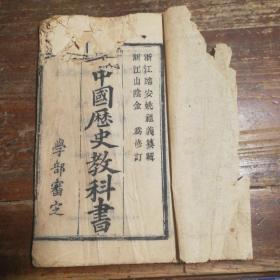 浙江瑞安姚祖義纂輯
浙江山陰金為修訂
中國歷史教科書
學部審定